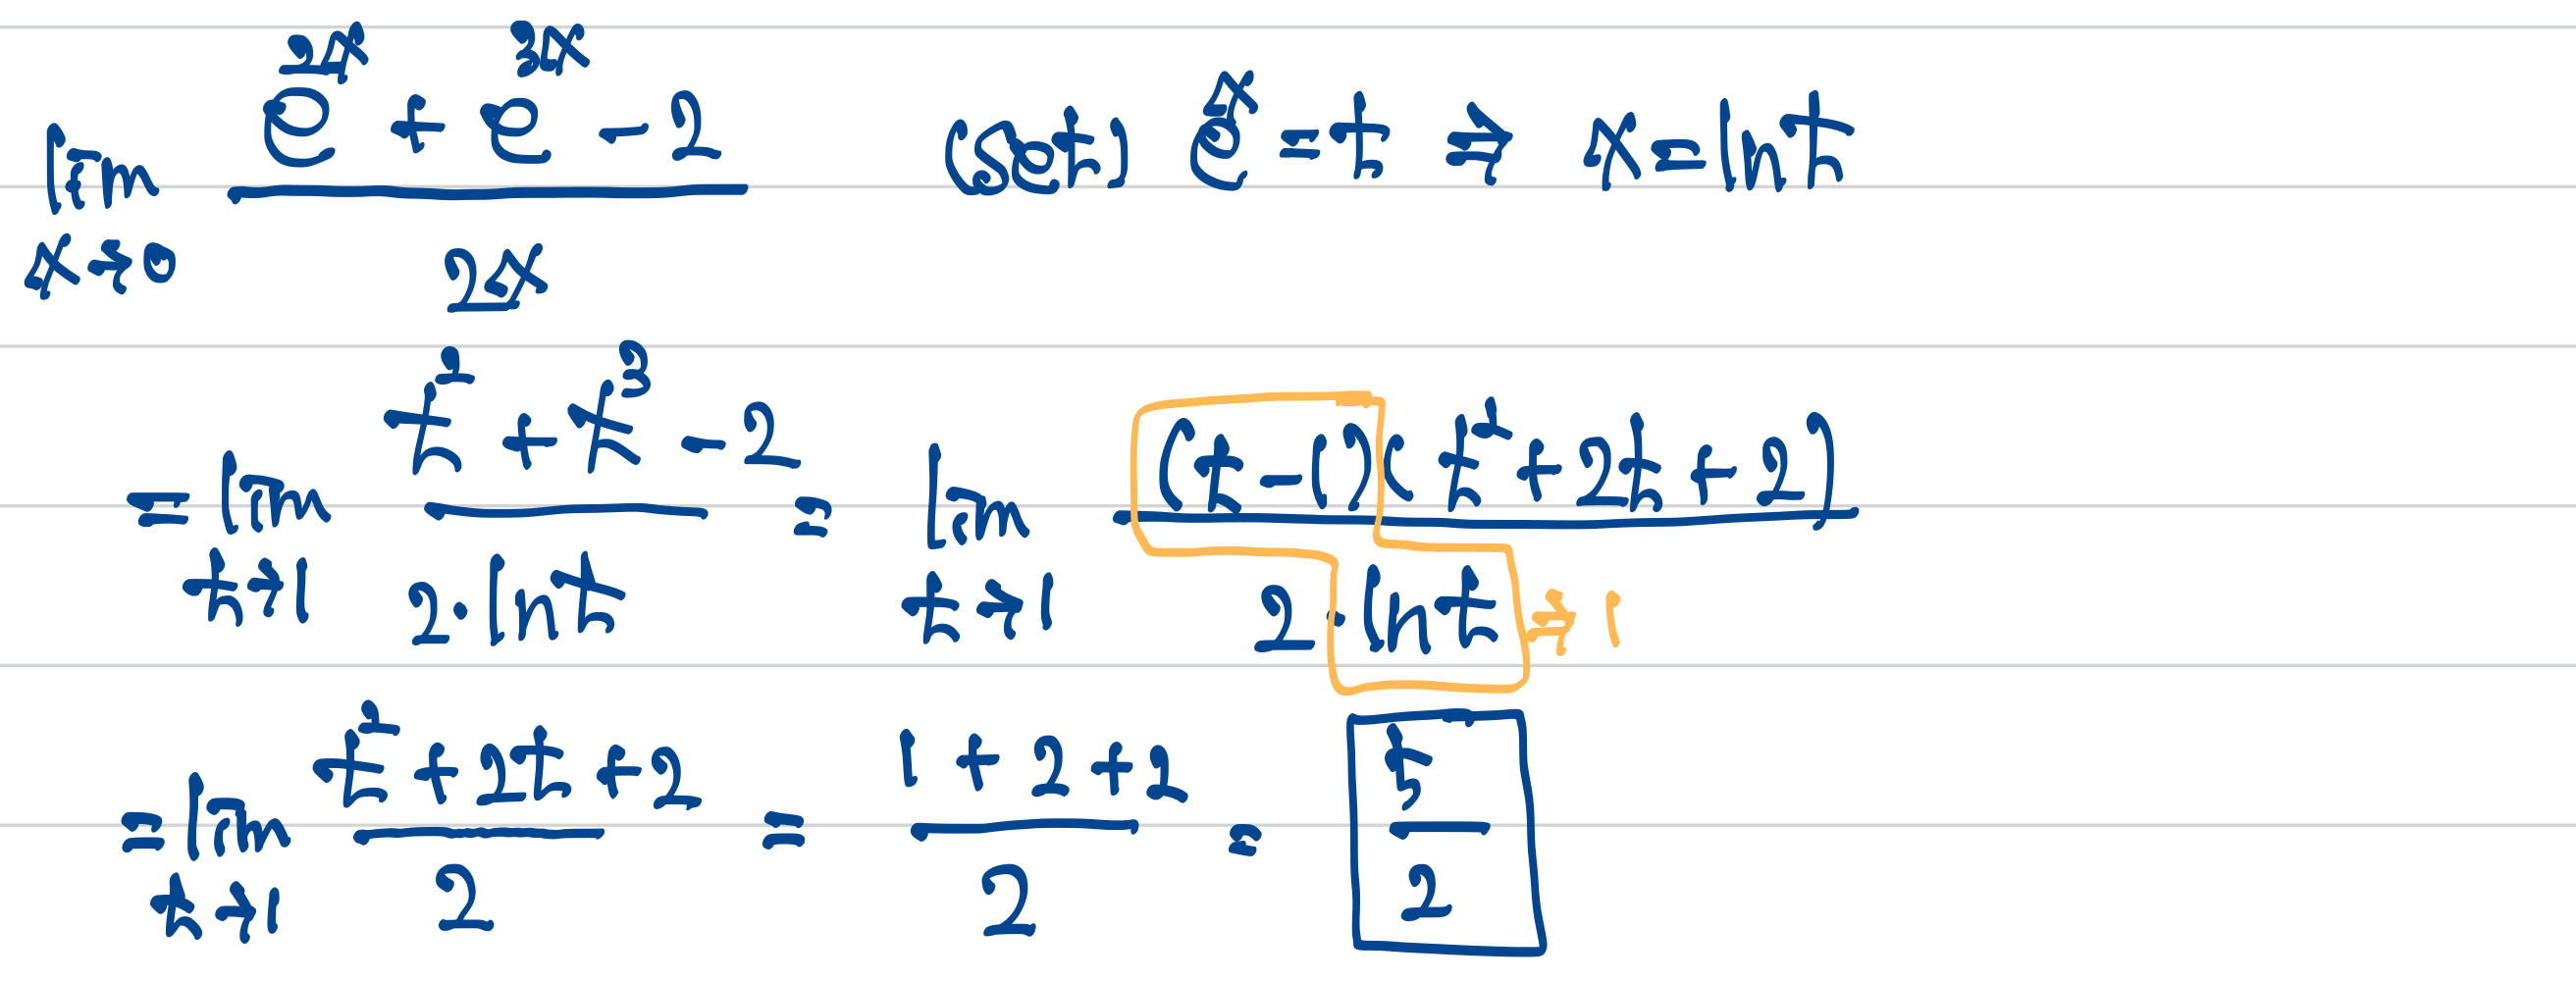 lim x→0 (e^{2x} + e^{3x} - 2) / 2x (Set) e^x = t ⇒ x = ln t
= lim t→1 (t^2 + t^3 - 2) / (2·ln t) = lim t→1 (t-1)(t^2 + 2t + 2) / (2·ln t) ⇒ 1
= lim t→1 (t^2 + 2t + 2) / 2 = (1 + 2 + 2) / 2 = 5/2